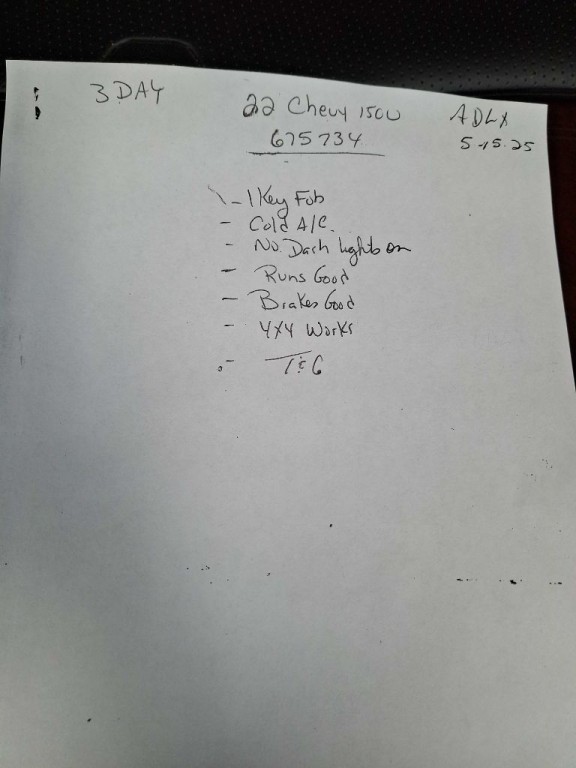 3 DAY
22 Chevy 1500
675734
ADLX
5-15-25
- 1 Key Fob
- Cold A/C.
- No. Dash lights on
- Runs Good
- Brakes Good
- 4x4 Works
- T&G